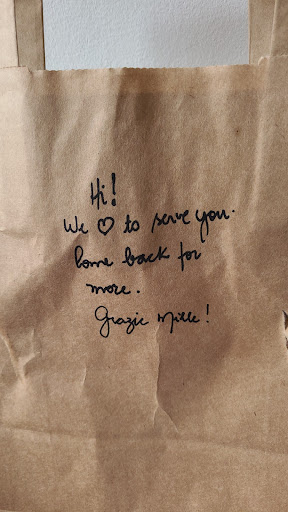 Hi!
We ♡ to serve you.
Come back for
more.
Grazie Mille!